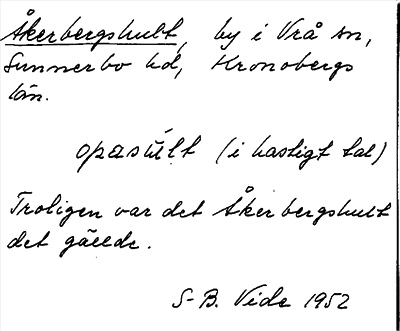 Åkerbergshult, by i Vrå sn,
Sunnerbo hd, Kronobergs
län.
opasúlt (i hastigt tal)
Troligen var det Åkerbergshult
det gällde.
S-B. Vide 1952